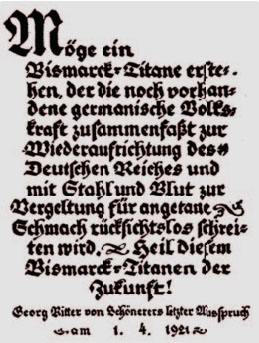 Möge ein
Bismarck-Titane erste-
hen, der die noch vorhan-
dene germanische Volks-
kraft zusammenfaßt zur
Wiederaufrichtung des
Deutschen Reiches und
mit Stahl und Blut zur
Vergeltung für angetane
Schmach rücksichtslos schrei-
ten wird. Heil diesem
Bismarck-Titanen der
Zukunft!
Georg Ritter von Schönerers letzter Ausspruch
am 1. 4. 1921